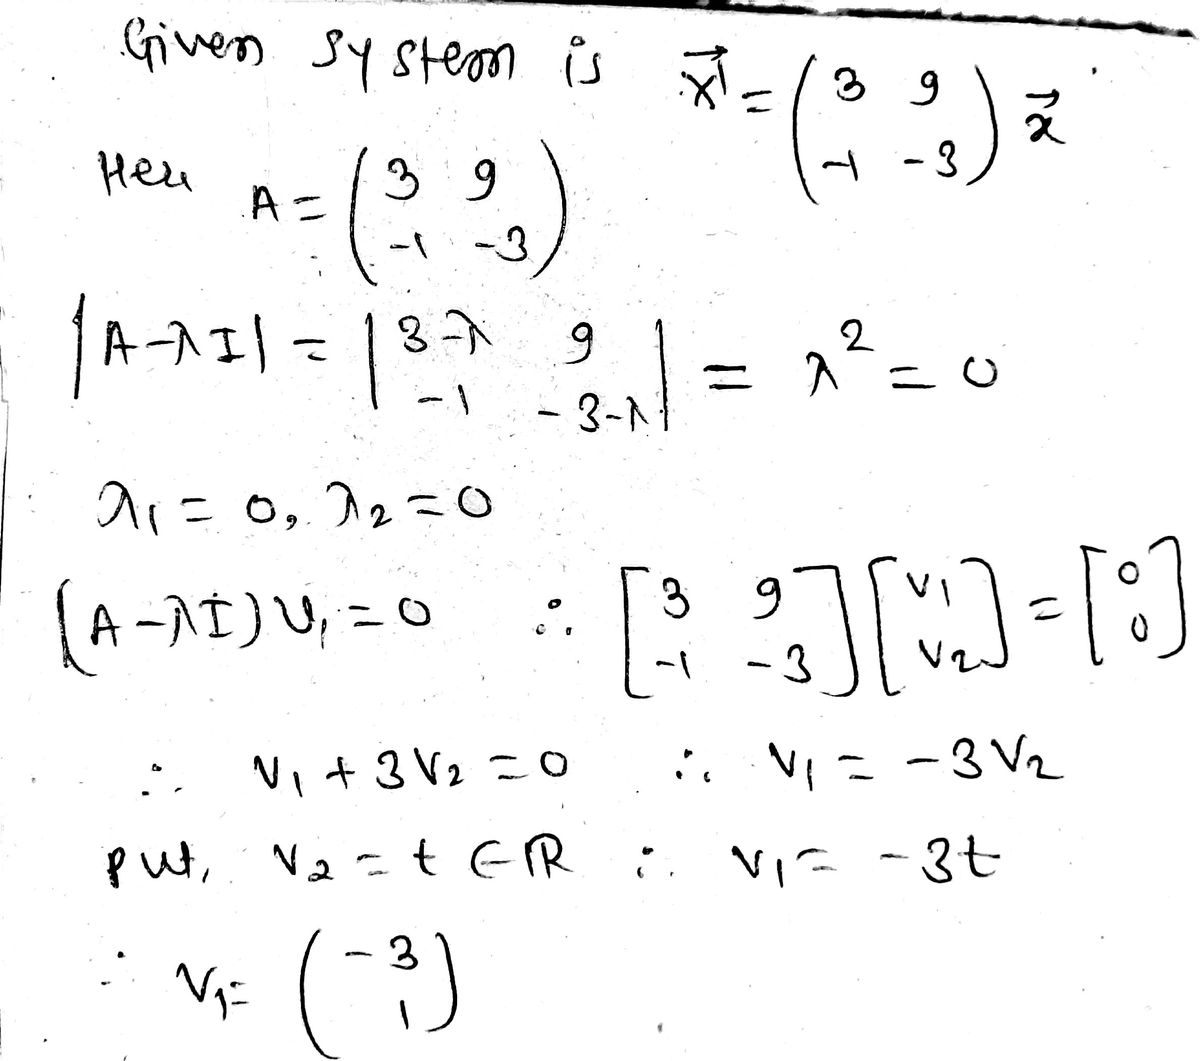 Given system is x⃗' = (3 9; -1 -3) x⃗
Here A = (3 9; -1 -3)
|A-λI| = |3-λ 9; -1 -3-λ| = λ² = 0
λ₁ = 0, λ₂ = 0
(A-λI)v₁ = 0 ∴ [3 9; -1 -3] [v₁; v₂] = [0; 0]
∴ v₁ + 3v₂ = 0 ∴ v₁ = -3v₂
put, v₂ = t ∈ ℝ ∴ v₁ = -3t
∴ v₁ = (-3; 1)